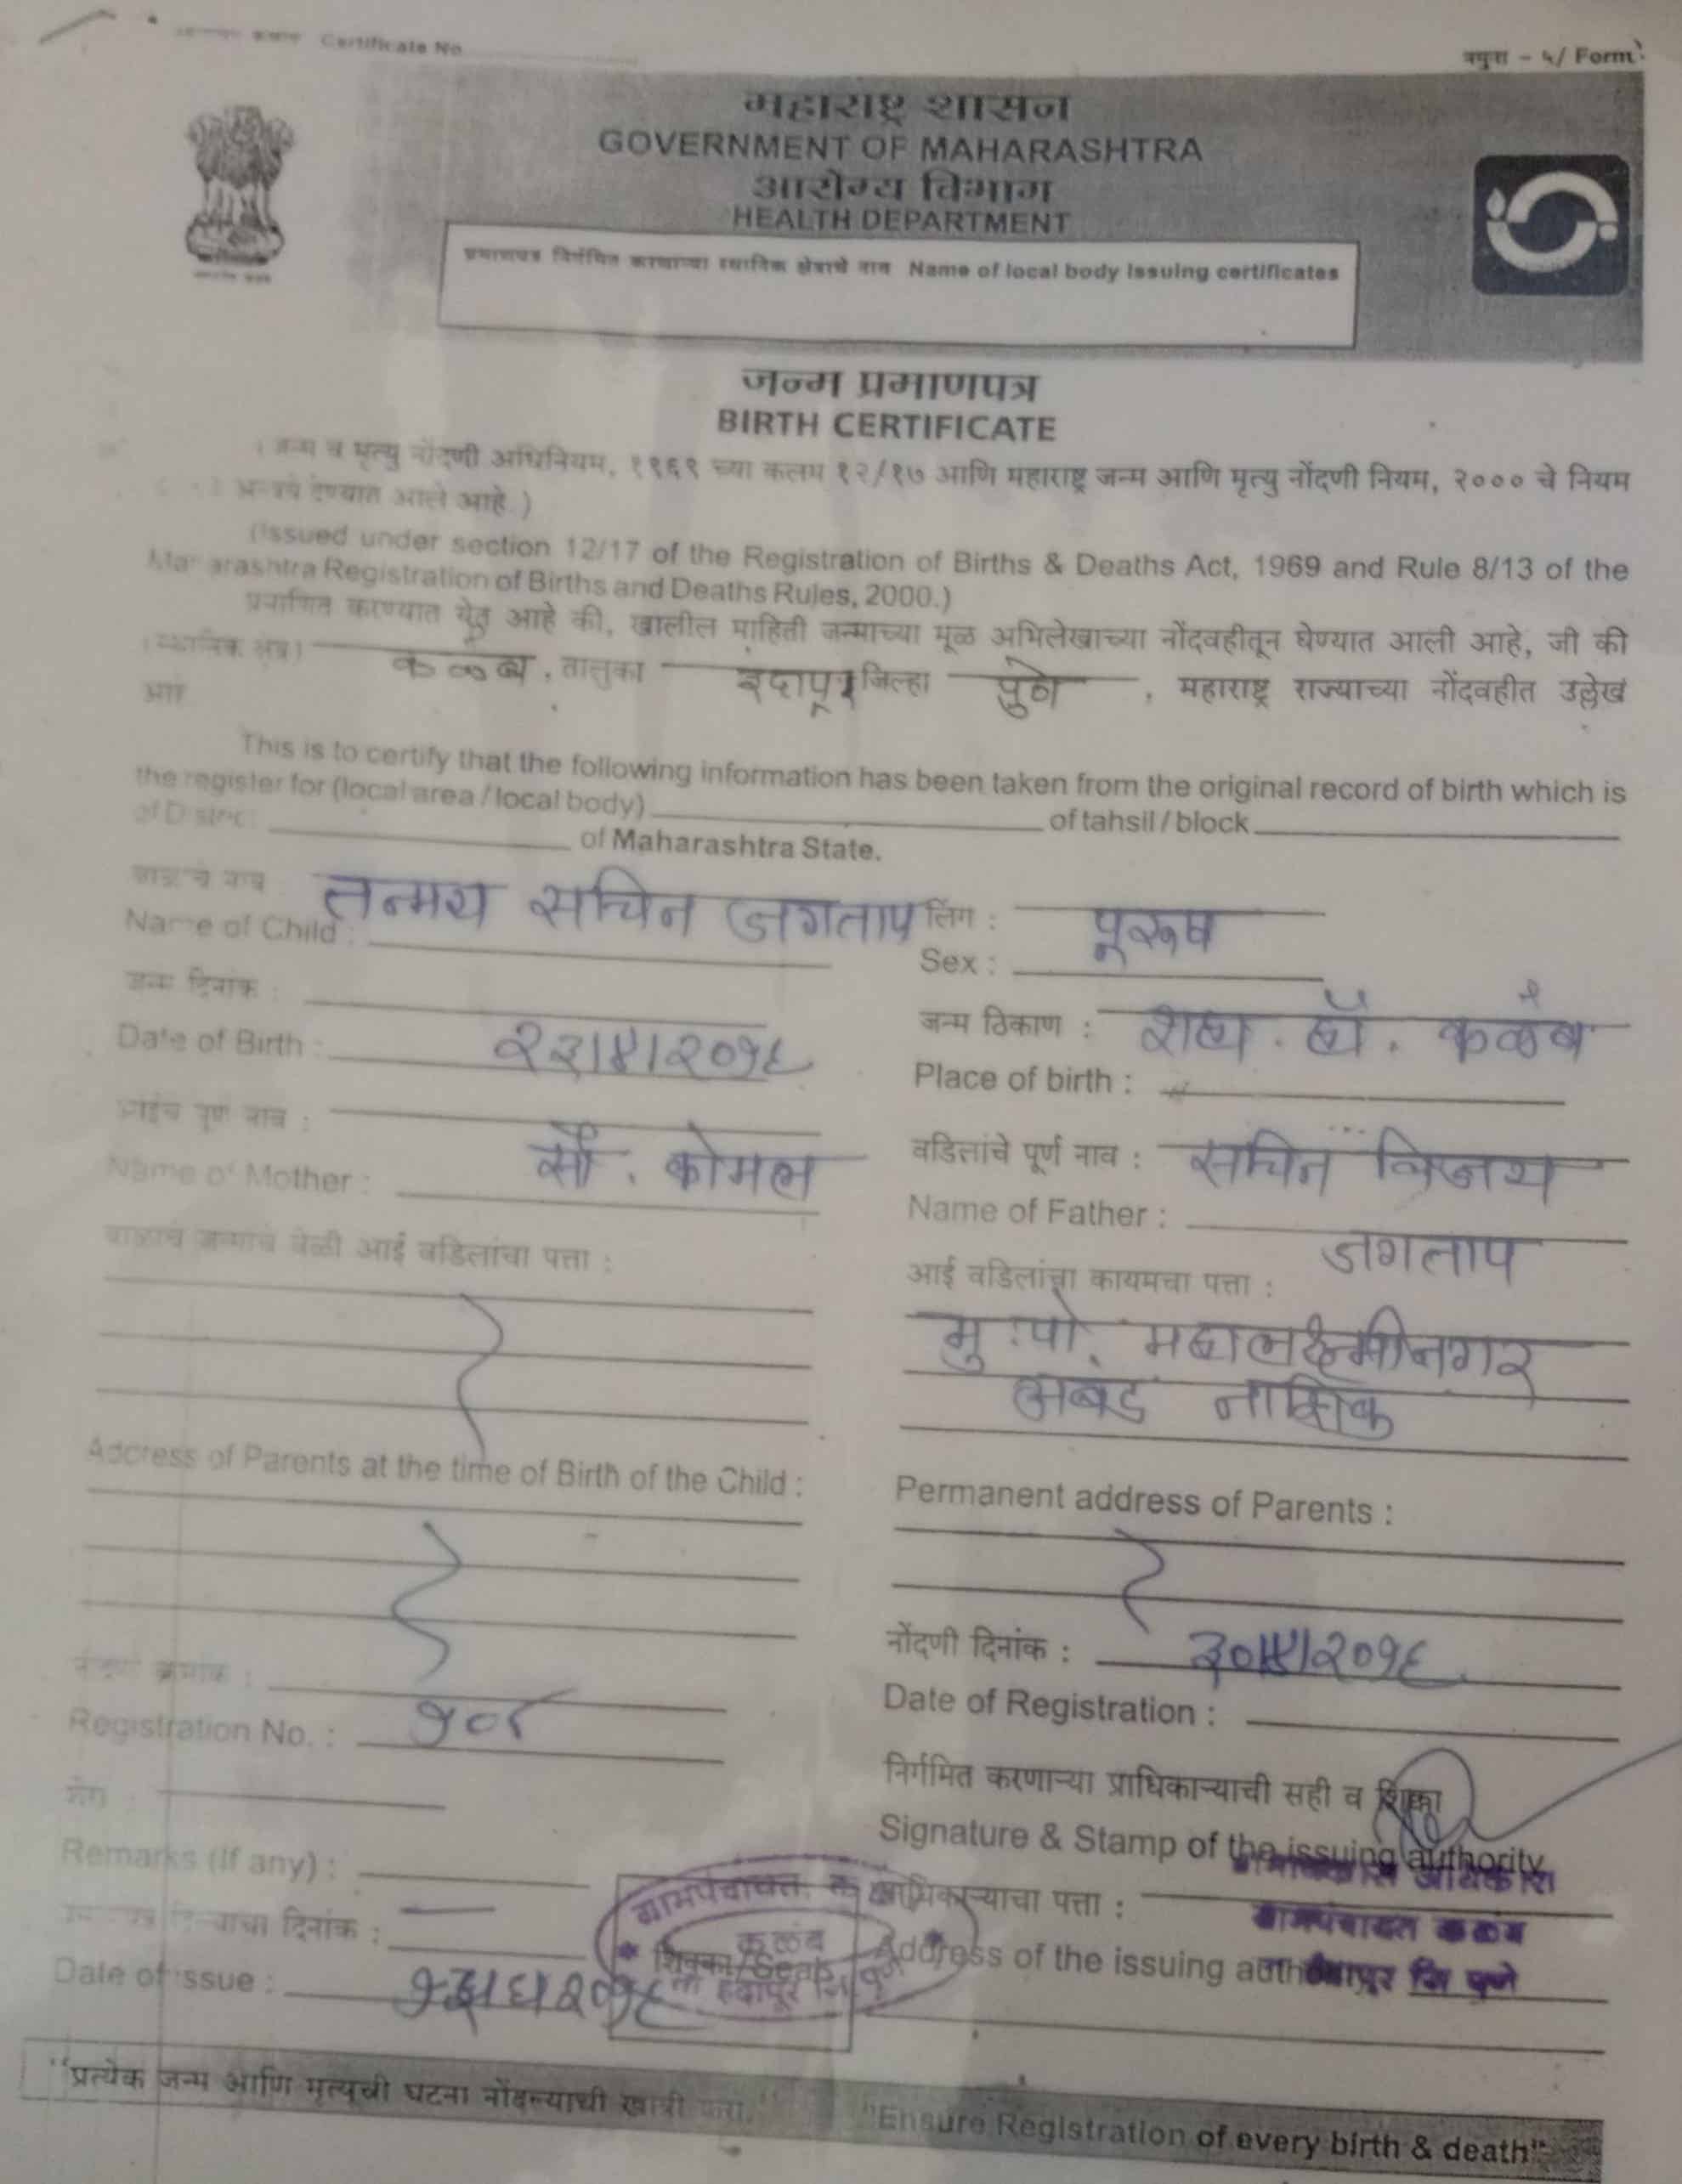 Certificate No
नमुना - ५/ Form
महाराष्ट्र शासन
GOVERNMENT OF MAHARASHTRA
आरोग्य विभाग
HEALTH DEPARTMENT
प्रमाणपत्र निर्गमित करणाऱ्या स्थानिक क्षेत्राचे नाव Name of local body issuing certificates
जन्म प्रमाणपत्र
BIRTH CERTIFICATE
( जन्म व मृत्यु नोंदणी अधिनियम, १९६९ च्या कलम १२/१७ आणि महाराष्ट्र जन्म आणि मृत्यु नोंदणी नियम, २००० चे नियम
अन्वये देण्यात आले आहे.)
(Issued under section 12/17 of the Registration of Births & Deaths Act, 1969 and Rule 8/13 of the
Maharashtra Registration of Births and Deaths Rules, 2000.)
प्रमाणित करण्यात येत आहे की, खालील माहिती जन्माच्या मूळ अभिलेखाच्या नोंदवहीतून घेण्यात आली आहे, जी की
(स्थानिक क्षेत्र) कळंब, तालुका इंदापूर जिल्हा पुणे, महाराष्ट्र राज्याच्या नोंदवहीत उल्लेख
आहे
This is to certify that the following information has been taken from the original record of birth which is
the register for (local area / local body) of tahsil / block
of District of Maharashtra State.
बाळाचे नाव तन्मय सचिन जगताप लिंग : पूरूष
Name of Child : Sex :
जन्म दिनांक : जन्म ठिकाण : शहा. हॉ. कळंब
Date of Birth : २३/४/२०१६ Place of birth :
आईचे पूर्ण नाव : सौ. कोमल वडिलांचे पूर्ण नाव : सचिन विजय
Name of Mother : Name of Father :
जगताप
बाळाचे जन्माचे वेळी आई वडिलांचा पत्ता : आई वडिलांचा कायमचा पत्ता :
मु.पो. महालक्ष्मीनगर
अंबड नाशिक
Address of Parents at the time of Birth of the Child : Permanent address of Parents :
नोंदणी क्रमांक : नोंदणी दिनांक : ३०/४/२०१६
Registration No. : १०८ Date of Registration :
निर्गमित करणाऱ्या प्राधिकाऱ्याची सही व शिक्का
Signature & Stamp of the issuing authority
Remarks (If any) :
ग्रामविकास अधिकारी
प्राधिकाऱ्याचा पत्ता :
ग्रामपंचायत कळंब
प्रमाणपत्र दिल्याचा दिनांक :
ग्रामपंचायत
कळंब
शिक्का/Seal
ता इंदापूर जि. पुणे
Address of the issuing authority
इंदापूर जि पुणे
Date of issue :
"प्रत्येक जन्म आणि मृत्यूची घटना नोंदल्याची खात्री करा." "Ensure Registration of every birth & death"